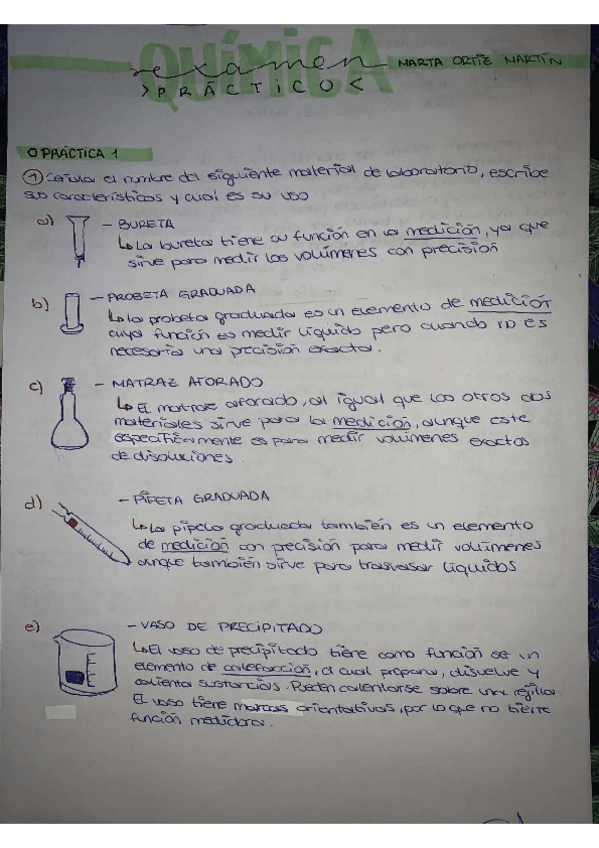 QUÍMICA
examen
MARTA ORTIZ MARTÍN
>PRÁCTICO<
O PRÁCTICA 1
1 Señala el nombre del siguiente material de laboratorio, escribe
sus características y cual es su uso
a) - BURETA
↳ La bureta tiene su función en la medición, ya que
sirve para medir los volúmenes con precisión
b) - PROBETA GRADUADA
↳ La probeta graduada es un elemento de medición
cuya función es medir líquido pero cuando no es
necesaria una precisión exacta.
c) - MATRAZ AFORADO
↳ El matraz aforado, al igual que los otros dos
materiales sirve para la medición, aunque este
específicamente es para medir volúmenes exactos
de disoluciones.
d) - PIPETA GRADUADA
↳ La pipeta graduada también es un elemento
de medición con precisión para medir volúmenes
aunque también sirve para trasvasar líquidos
e) - VASO DE PRECIPITADO
↳ El vaso de precipitado tiene como función se un
elemento de calefacción, el cual prepara, disuelve y
calienta sustancias. Pueden calentarse sobre una rejilla.
El vaso tiene marcas orientativas, por lo que no tiene
función medidora.